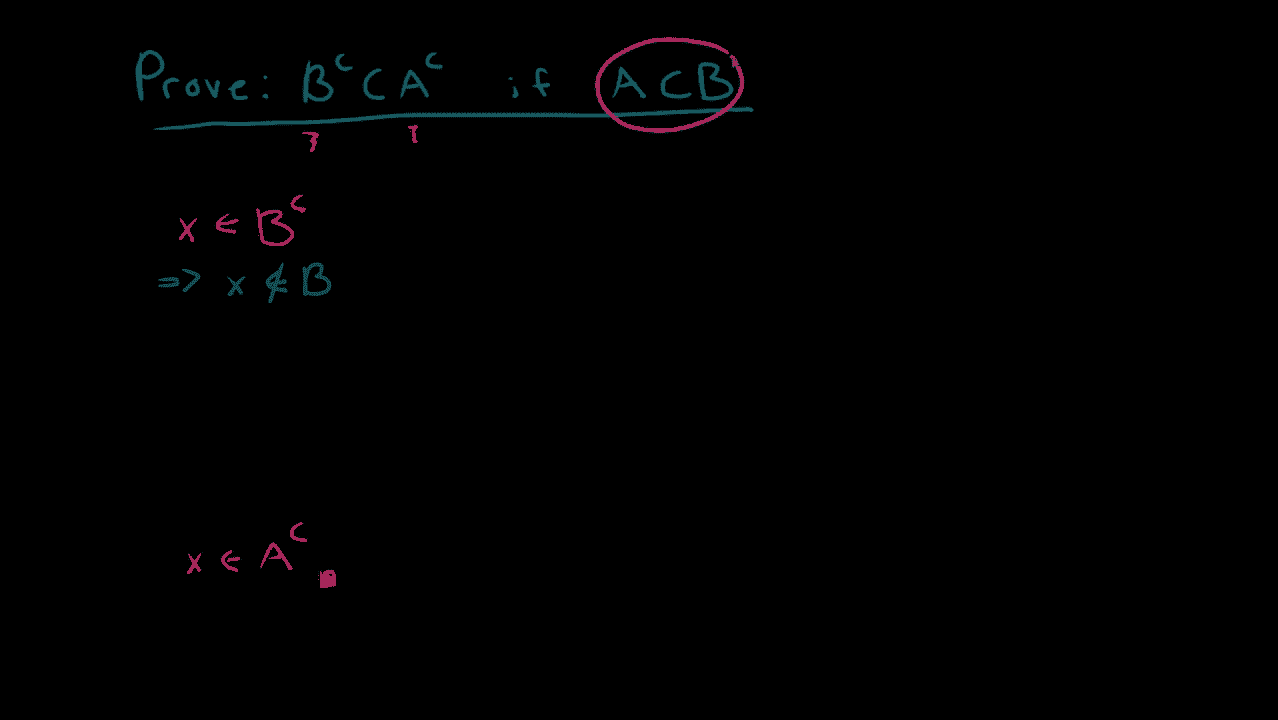 Prove: Bᶜ ⊂ Aᶜ if A ⊂ B
x ∈ Bᶜ
=> x ∉ B
x ∈ Aᶜ